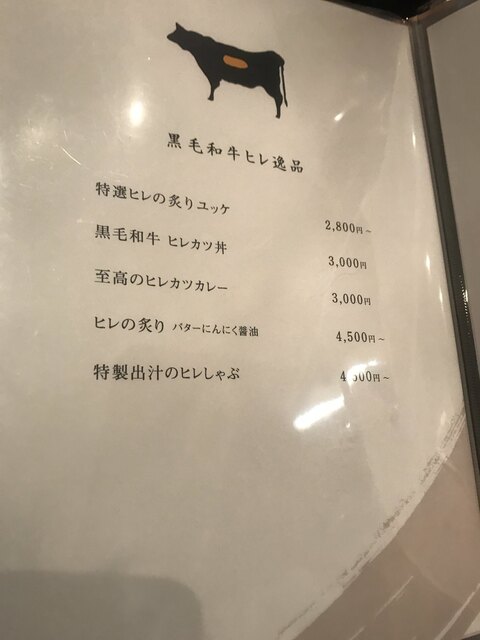 黒毛和牛ヒレ逸品
特選ヒレの炙りユッケ
2,800円～
黒毛和牛 ヒレカツ丼
3,000円
至高のヒレカツカレー
3,000円
ヒレの炙り バターにんにく醤油
4,500円～
特製出汁のヒレしゃぶ